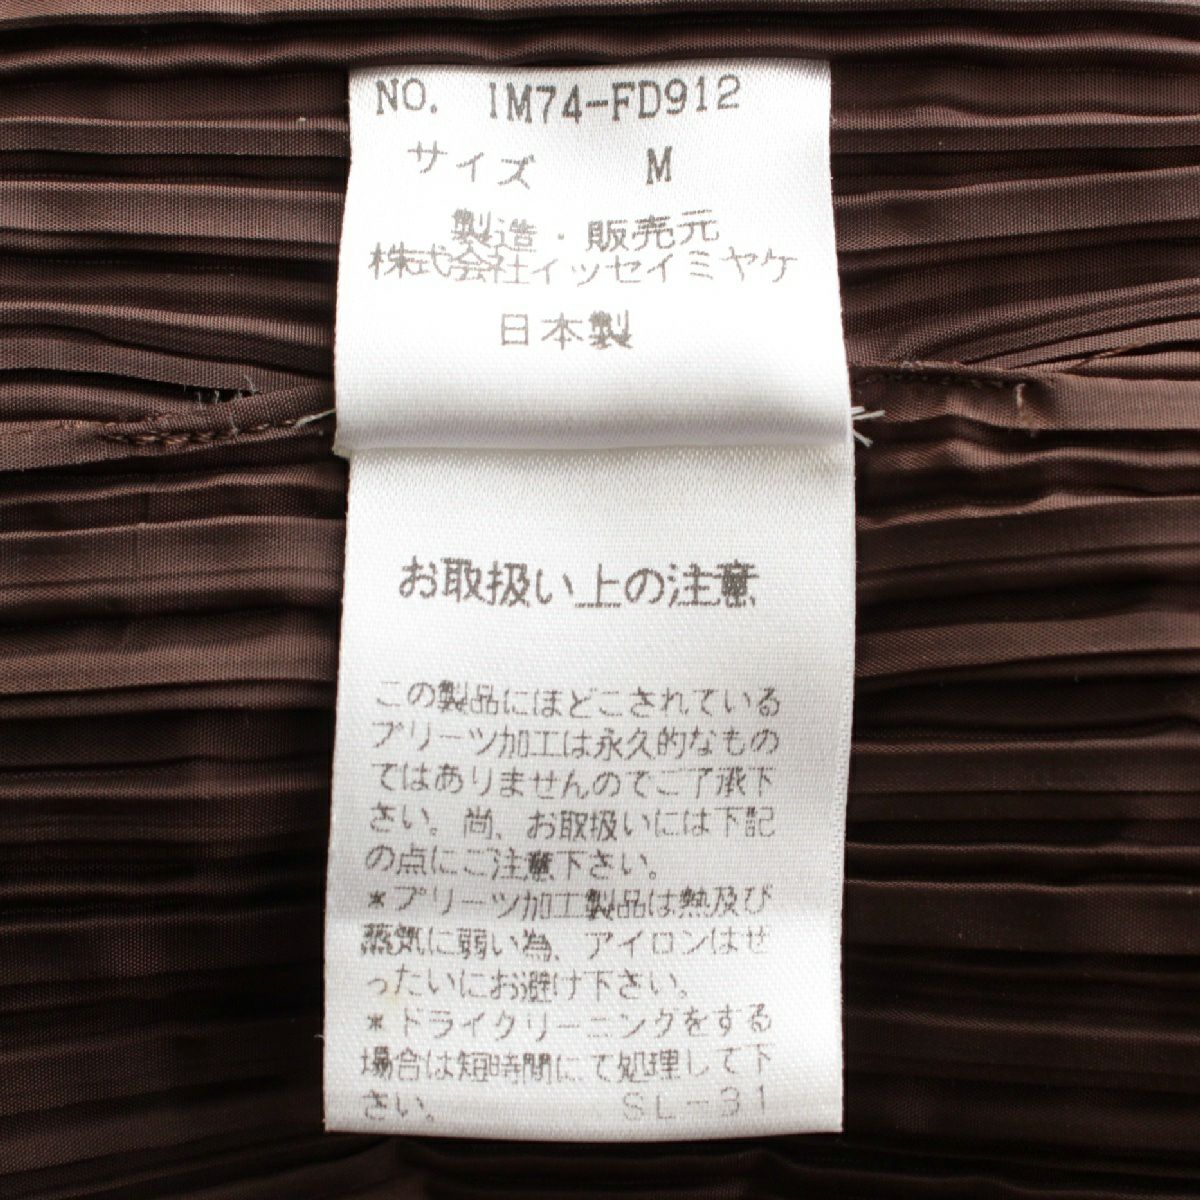 NO. IM74-FD912
サイズ M
製造・販売元
株式会社イッセイミヤケ
日本製
お取扱い上の注意
この製品にほどこされている
プリーツ加工は永久的なもの
ではありませんのでご了承下
さい。尚、お取扱いには下記
の点にご注意下さい。
*プリーツ加工製品は熱及び
蒸気に弱い為、アイロンはぜ
ったいにお避け下さい。
*ドライクリーニングをする
場合は短時間にて処理して下
さい。 SL-31